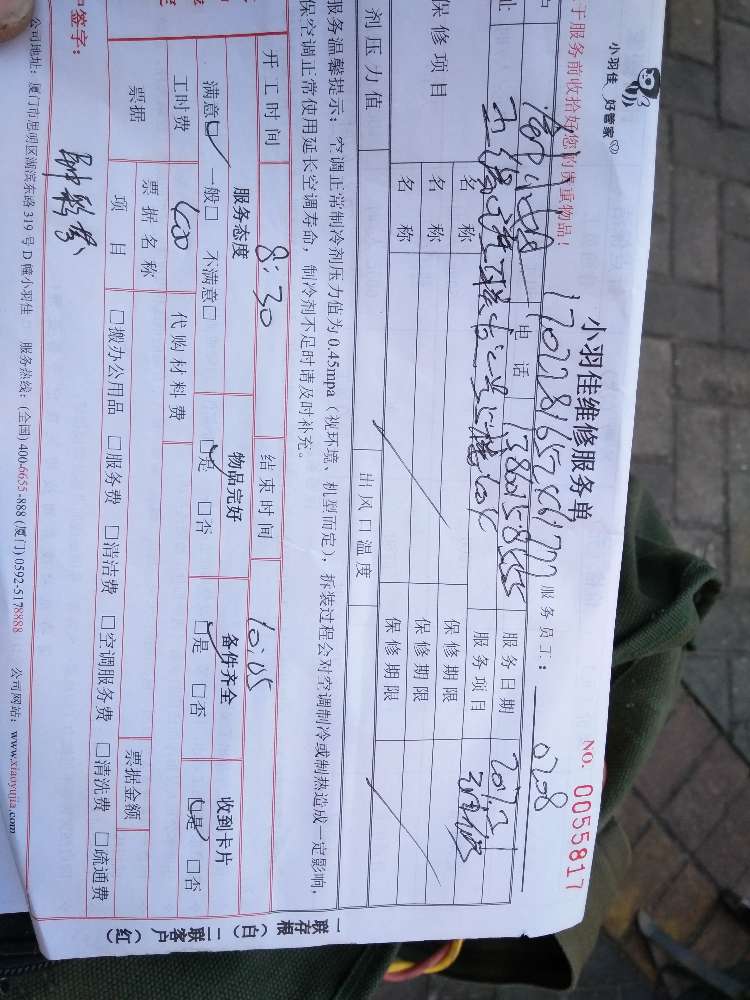 小羽佳 好管家
小羽佳维修服务单
NO. 0055817
于服务前收拾好您的贵重物品!
服务员工: 0208
电话 13801585655 服务日期
服务项目
保修项目 名称 保修期限
名称 保修期限
名称 保修期限
剂压力值 出风口温度
服务温馨提示:空调正常制冷剂压力值为0.45mpa(视环境、机型而定),拆装过程会对空调制冷或制热造成一定影响,
保空调正常使用延长空调寿命,制冷剂不足时请及时补充。
开工时间 8:30 结束时间 10:05
服务态度 物品完好 备件齐全 收到卡片
满意☑ 一般□ 不满意□ ☑是 □否 ☑是 □否 ☑是 □否
工时费 400 代购材料费
票据 票据名称 票据金额
项目 □搬办公用品 □服务费 □清洁费 □空调服务费 □清洗费 □疏通费
签字:
公司地址:厦门市思明区湖滨东路319号D幢小羽佳 服务热线:(全国)400-6655-888(厦门)0592-5178888 公司网站:www.xiaoyujia.com
一联存根(白) 二联客户(红)